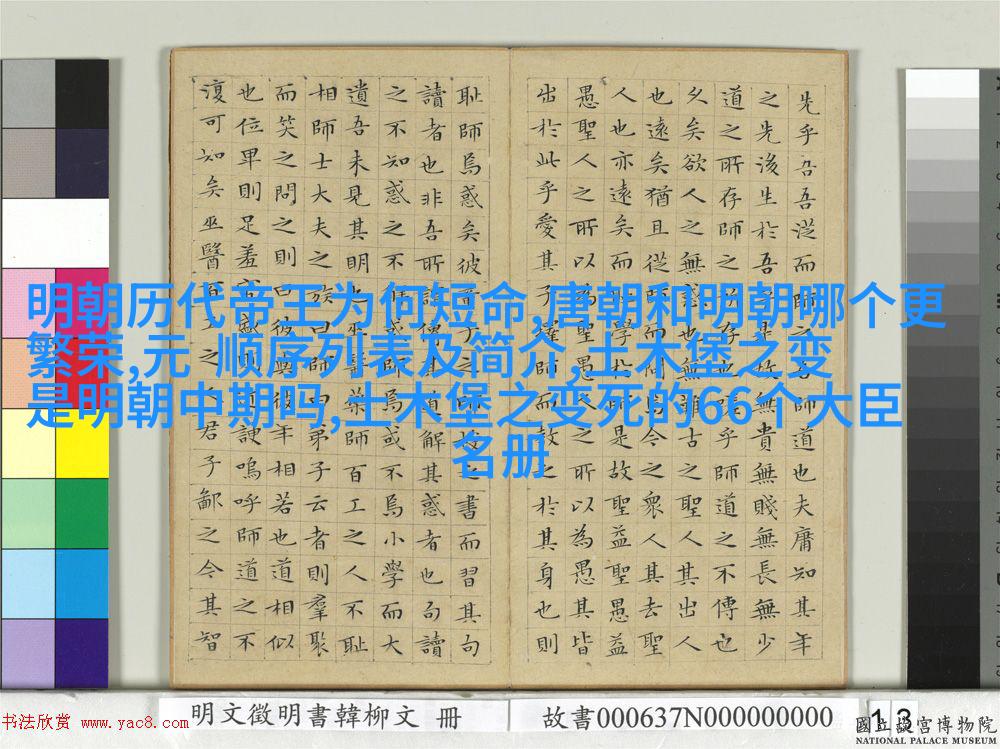 明朝历代帝王为何短命,唐朝和明朝哪个更
繁荣,元 顺序列表及简介,土木堡之变
是明朝中期吗,土木堡之变死的66个大臣
名册
先乎吾吾從而師之吾師道也夫庸知其年
之先後生於吾乎是故無貴無賤無長無少
道之所存師之所存也嗟乎師道之不傳也
久矣欲人之無惑也難矣古之聖人其出人
也遠矣猶且從師而問焉今之衆人其去聖
人也亦遠矣而恥學於師是故聖益聖愚益
愚聖人之所以為聖愚人之所以為愚其皆
出於此乎愛其子擇師而教之於其身也則
恥師焉惑矣彼童子之師授之書而習其句
讀者也非吾所謂傳其道解其惑者也句讀
之不知惑之不解或師焉或不焉小學而大
遺吾未見其明也巫醫樂師百工之人不恥
相師士大夫之族曰師曰弟子云者則羣聚
而笑之問之則曰彼與彼年相若也道相似
也位卑則足羞官盛則近諛嗚呼師道之不
復可知矣巫醫百工之人君子鄙之今其智
明文徵明書韓柳文 冊
故書000637N000000000
13
书法欣赏 www.yac8.com
國立故宮博物院
NATIONAL PALACE MUSEUM